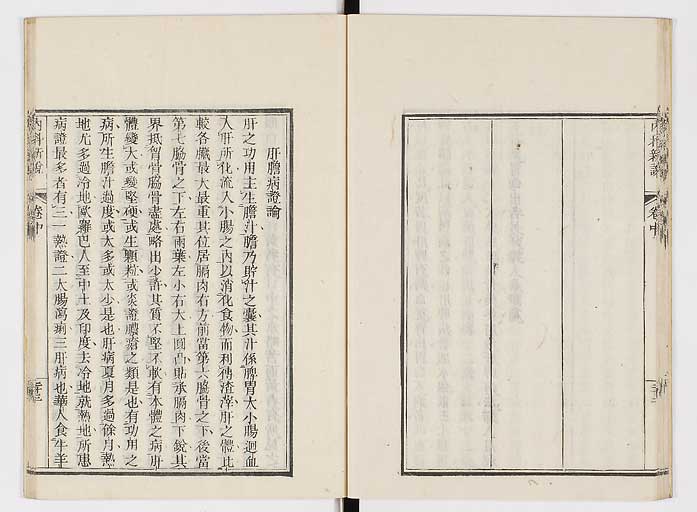 內科新說
卷中
肝膽病證論
肝之功用主生膽汁膽乃貯汁之囊其汁係脾胃大小腸迴血
入肝所化流入小腸之內以消化食物而利物渣滓肝之體比
較各臟最大最重其位居膈肉右方前當第六脇骨之下後當
第七脇骨之下左右兩葉左小右大上圓凸貼承膈肉下銳其
界抵胃骨脇骨盡處略出少許其質不堅不軟有本體之病肝
體變大或變堅硬或生顆粒或炎證膿瘡之類是也有功用之
病所生膽汁過度或太多或太少是也肝病夏月多過餘月熱
地尤多過冷地歐羅巴人至中土及印度去冷地就熱地所患
病證最多者有三一熱證二大腸瀉痢三肝病也華人食牛羊
內科新說
卷中